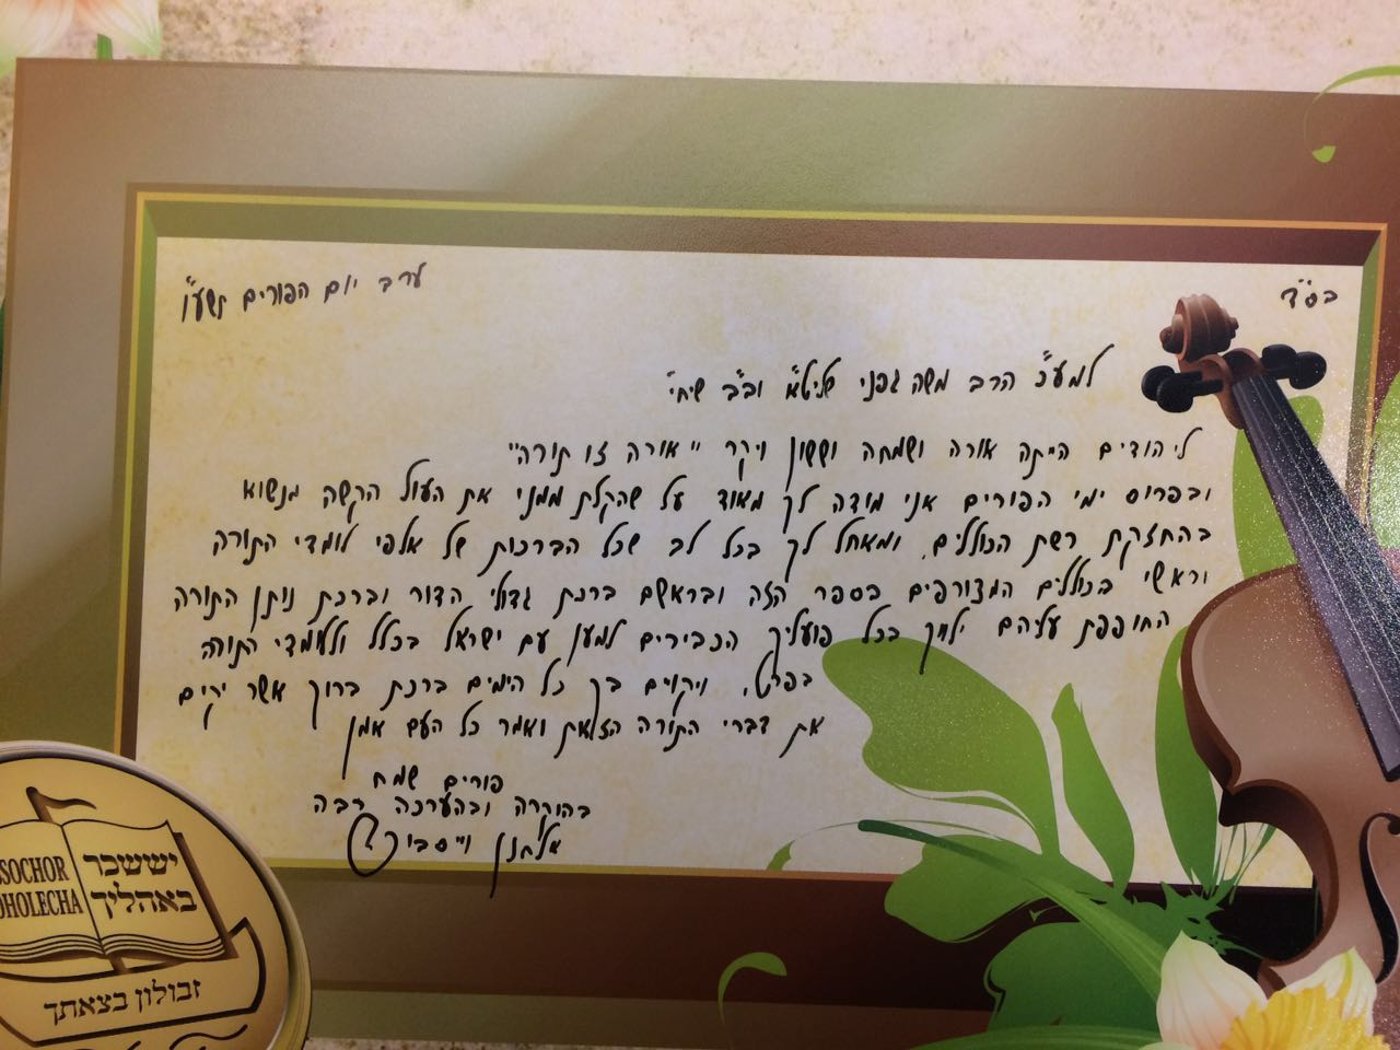 בס"ד
ערב יום הפורים תשע"ו
למע"כ הרב משה גפני שליט"א וב"ב שיחי'
ליהודים היתה אורה ושמחה וששון ויקר "אורה זו תורה"
ובפרוס ימי הפורים אני מודה לך מאוד על שהקלת ממני את העול הקשה מנשוא
בהחזקת רשת הכוללים, ומאחל לך בכל לב שכל הברכות של אלפי לומדי התורה
וראשי הכוללים המצורפים בספר הזה ובראשם ברכת גדולי הדור וברכת נותן התורה
החופפת עליהם ילווך בכל פועליך הכבירים למען עם ישראל בכלל ולעמלי התורה
בפרט, ויקוים בך כל הימים ברכת ברוך אשר יקים
את דברי התורה הזאת ואמר כל העם אמן
פורים שמח
בהוקרה ובהערכה רבה
אלחנן
SOCHOR
OHOLECHA
יששכר
באהליך
זבולון בצאתך